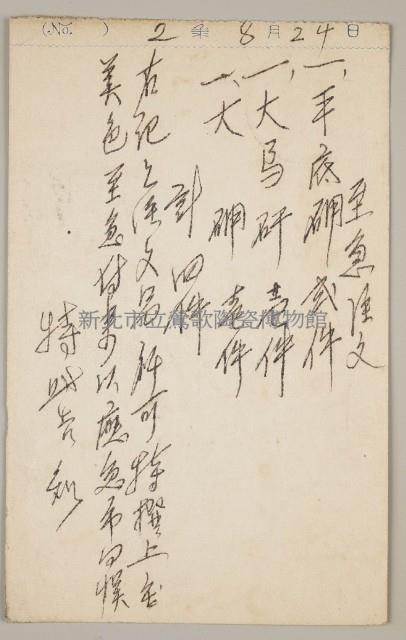 (No. ) 2 年 8 月 24 日
至急注文
一、平底硼 貳件
一、大烏矸 壹件
一、大硼 壹件
計四件
右記之注文品 可特撰上
美色至急付 以應急
特此告知
新北市立鶯歌陶瓷博物館